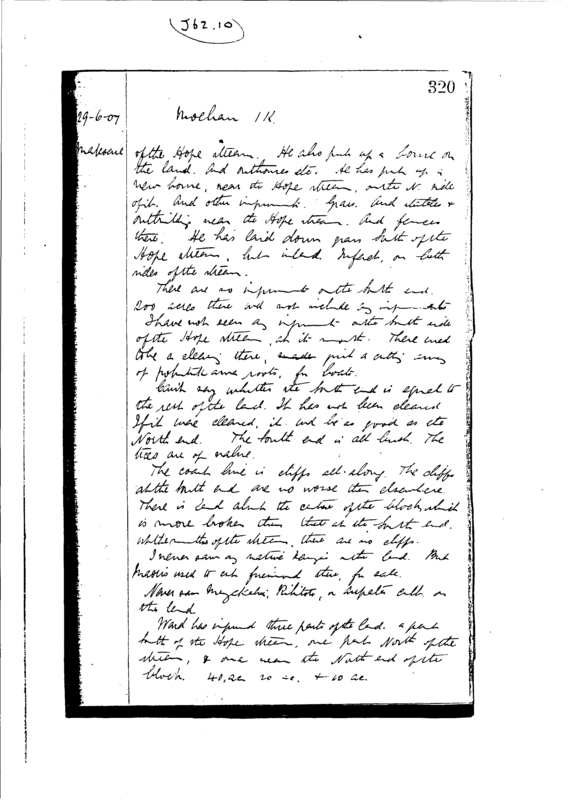 J62.10
320
29-6-07 Mochan 1K.
of the Hope stream. He also put up a house on
the land. And outhouses etc. He has put up a
new house, near the Hope stream, on the N. side
of it. And other improvements. Grass. And stables +
outbuilding near the Hope stream. And fences
there. He has laid down grass South of the
Hope stream, but inland. In fact, on both
sides of the stream.
There are no improvements on the South end.
200 acres there wd not include any improvements
I have not seen any improvement on the South side
of the Hope stream, at its mouth. There used
to be a clearing there, made just a cutting away
of pohutukawa roots, for boats.
Can't say whether the South end is equal to
the rest of the land. It has not been cleared
If it were cleared, it wd be as good as the
North end. The South end is all bush. The
trees are of value.
The coast line is cliffs all along. The cliffs
at the South end are no worse than elsewhere.
There is land about the centre of the block, which
is more broken than that at the South end.
At the mouths of the stream, there are no cliffs.
I never saw any native on the land. But
Maoris used to cut firewood there, for sale.
Never saw or cult on
the land
Ward has improved three parts of the land. a part
South of the Hope stream, one part North of the
stream, & one near the North end of the
block. 40, ac 20 ac. + 10 ac